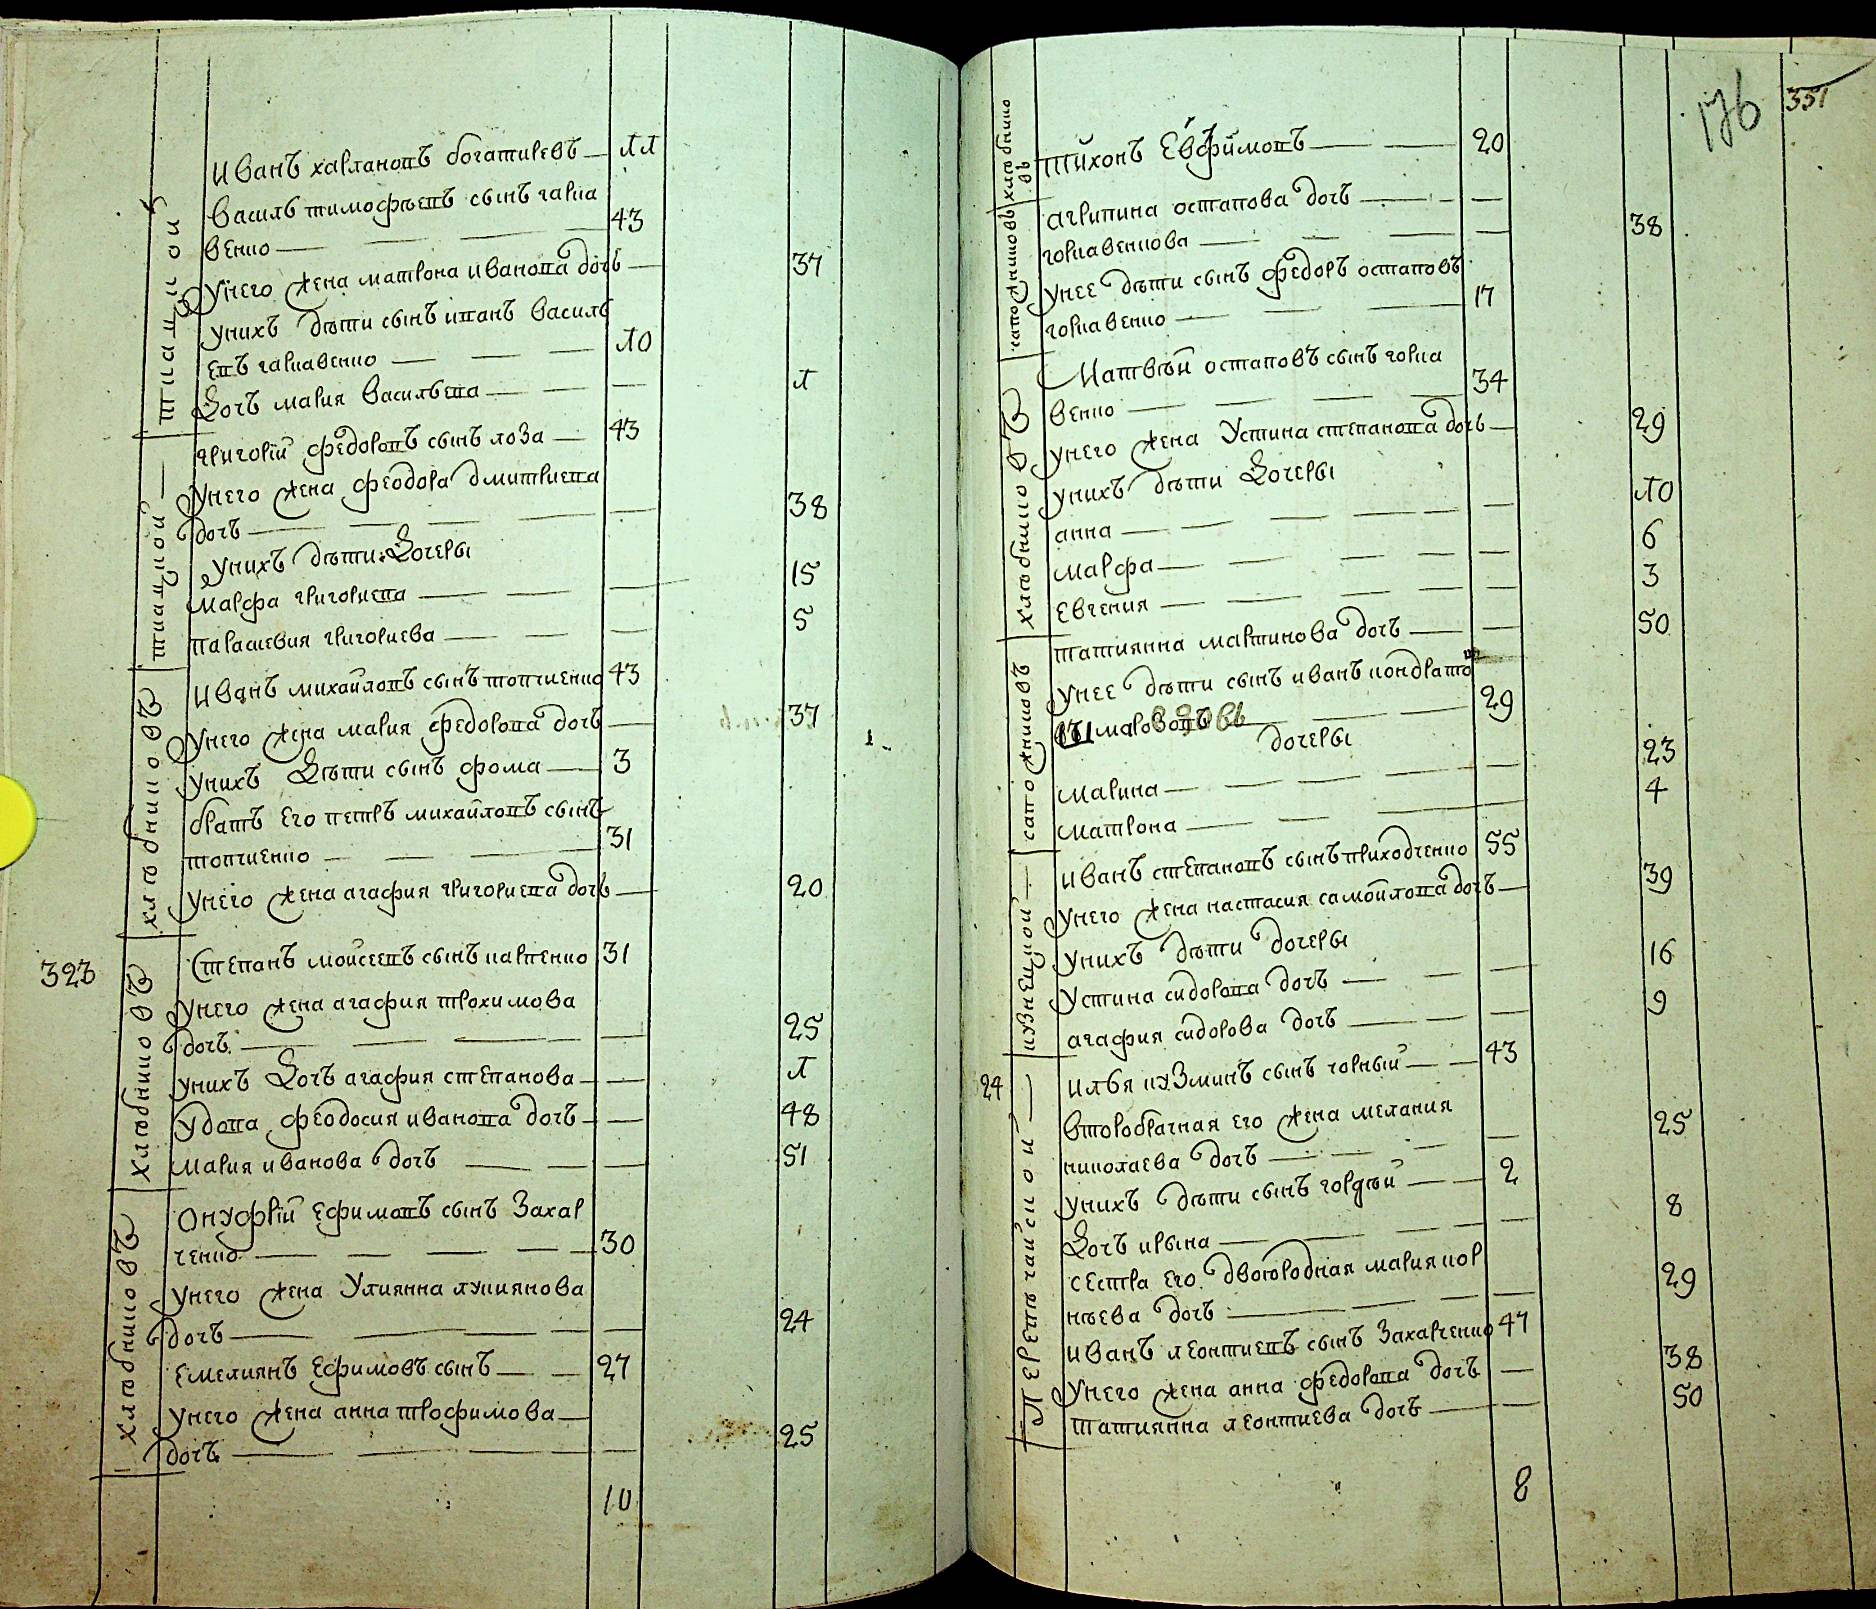 ткацкой
Иванъ харлановъ богатиревъ — 11
василь тимофѣевъ сынъ гарка
венко — 43
унего жена матрона иванова дочь — 37
унихъ дѣти сынъ иванъ василь
евъ гаркавенко — 10
Дочь мария васильева — 1
ткацкой
григорій федоровъ сынъ лоза — 43
унего жена феодора дмитриева
дочь — 38
унихъ дѣти: Дочеры
марфа григориева — 15
параскевия григориева — 5
хлѣбниковъ
Иванъ михайловъ сынъ топчиенко 43
унего жена мария федорова дочь — 37
унихъ Дѣти сынъ фома — 3
братъ его петръ михайловъ сынъ
топчиенко — 31
унего жена агафия григориева дочь — 20
323
хлѣбниковъ
Степанъ моисеевъ сынъ карпенко 31
унего жена агафия трохимова
дочь — 25
унихъ Дочь агафия степанова — 1
удова феодосия иванова дочь — 48
мария иванова дочь — 51
хлѣбниковъ
Онуфрій ефимовъ сынъ Захар
ченко — 30
унего жена Улиянна лукиянова
дочь — 24
емелиянъ ефимовъ сынъ — 27
унего жена анна трофимова —
дочь — 25
10
176 351
хлѣбнико
въ
тихонъ Евфимовъ — 20
сапожниковъ
агрипина остапова дочь —
горкавенкова — 38
унее дѣти сынъ федоръ остаповъ
горкавенко — 17
хлѣбниковъ
Матвѣй остаповъ сынъ горка
венко — 34
унего жена Устина степанова дочь — 29
унихъ дѣти Дочеры
анна — 10
марфа — 6
евгения — 3
сапожниковъ
татиянна мартинова дочь — 50
унее дѣти сынъ иванъ кондрато
марозовъ — 29
дочеры
марина — 23
матрона — 4
кузнецкой
иванъ степановъ сынъ приходченко 55
унего жена настасия самойлова дочь — 39
унихъ дѣти дочеры
Устина сидорова дочь — 16
агафия сидорова дочь — 9
24
Перетѣчайской
илья кузминъ сынъ чорный — 43
второбрачная его жена мелания
николаева дочь — 25
унихъ дѣти сынъ гордѣй — 2
Дочь ирына — 8
сестра его двоюродная мария кор
нѣева дочь — 29
иванъ леонтиевъ сынъ Захарченко 47
унего жена анна федорова дочь — 38
татиянна леонтиева дочь — 50
8